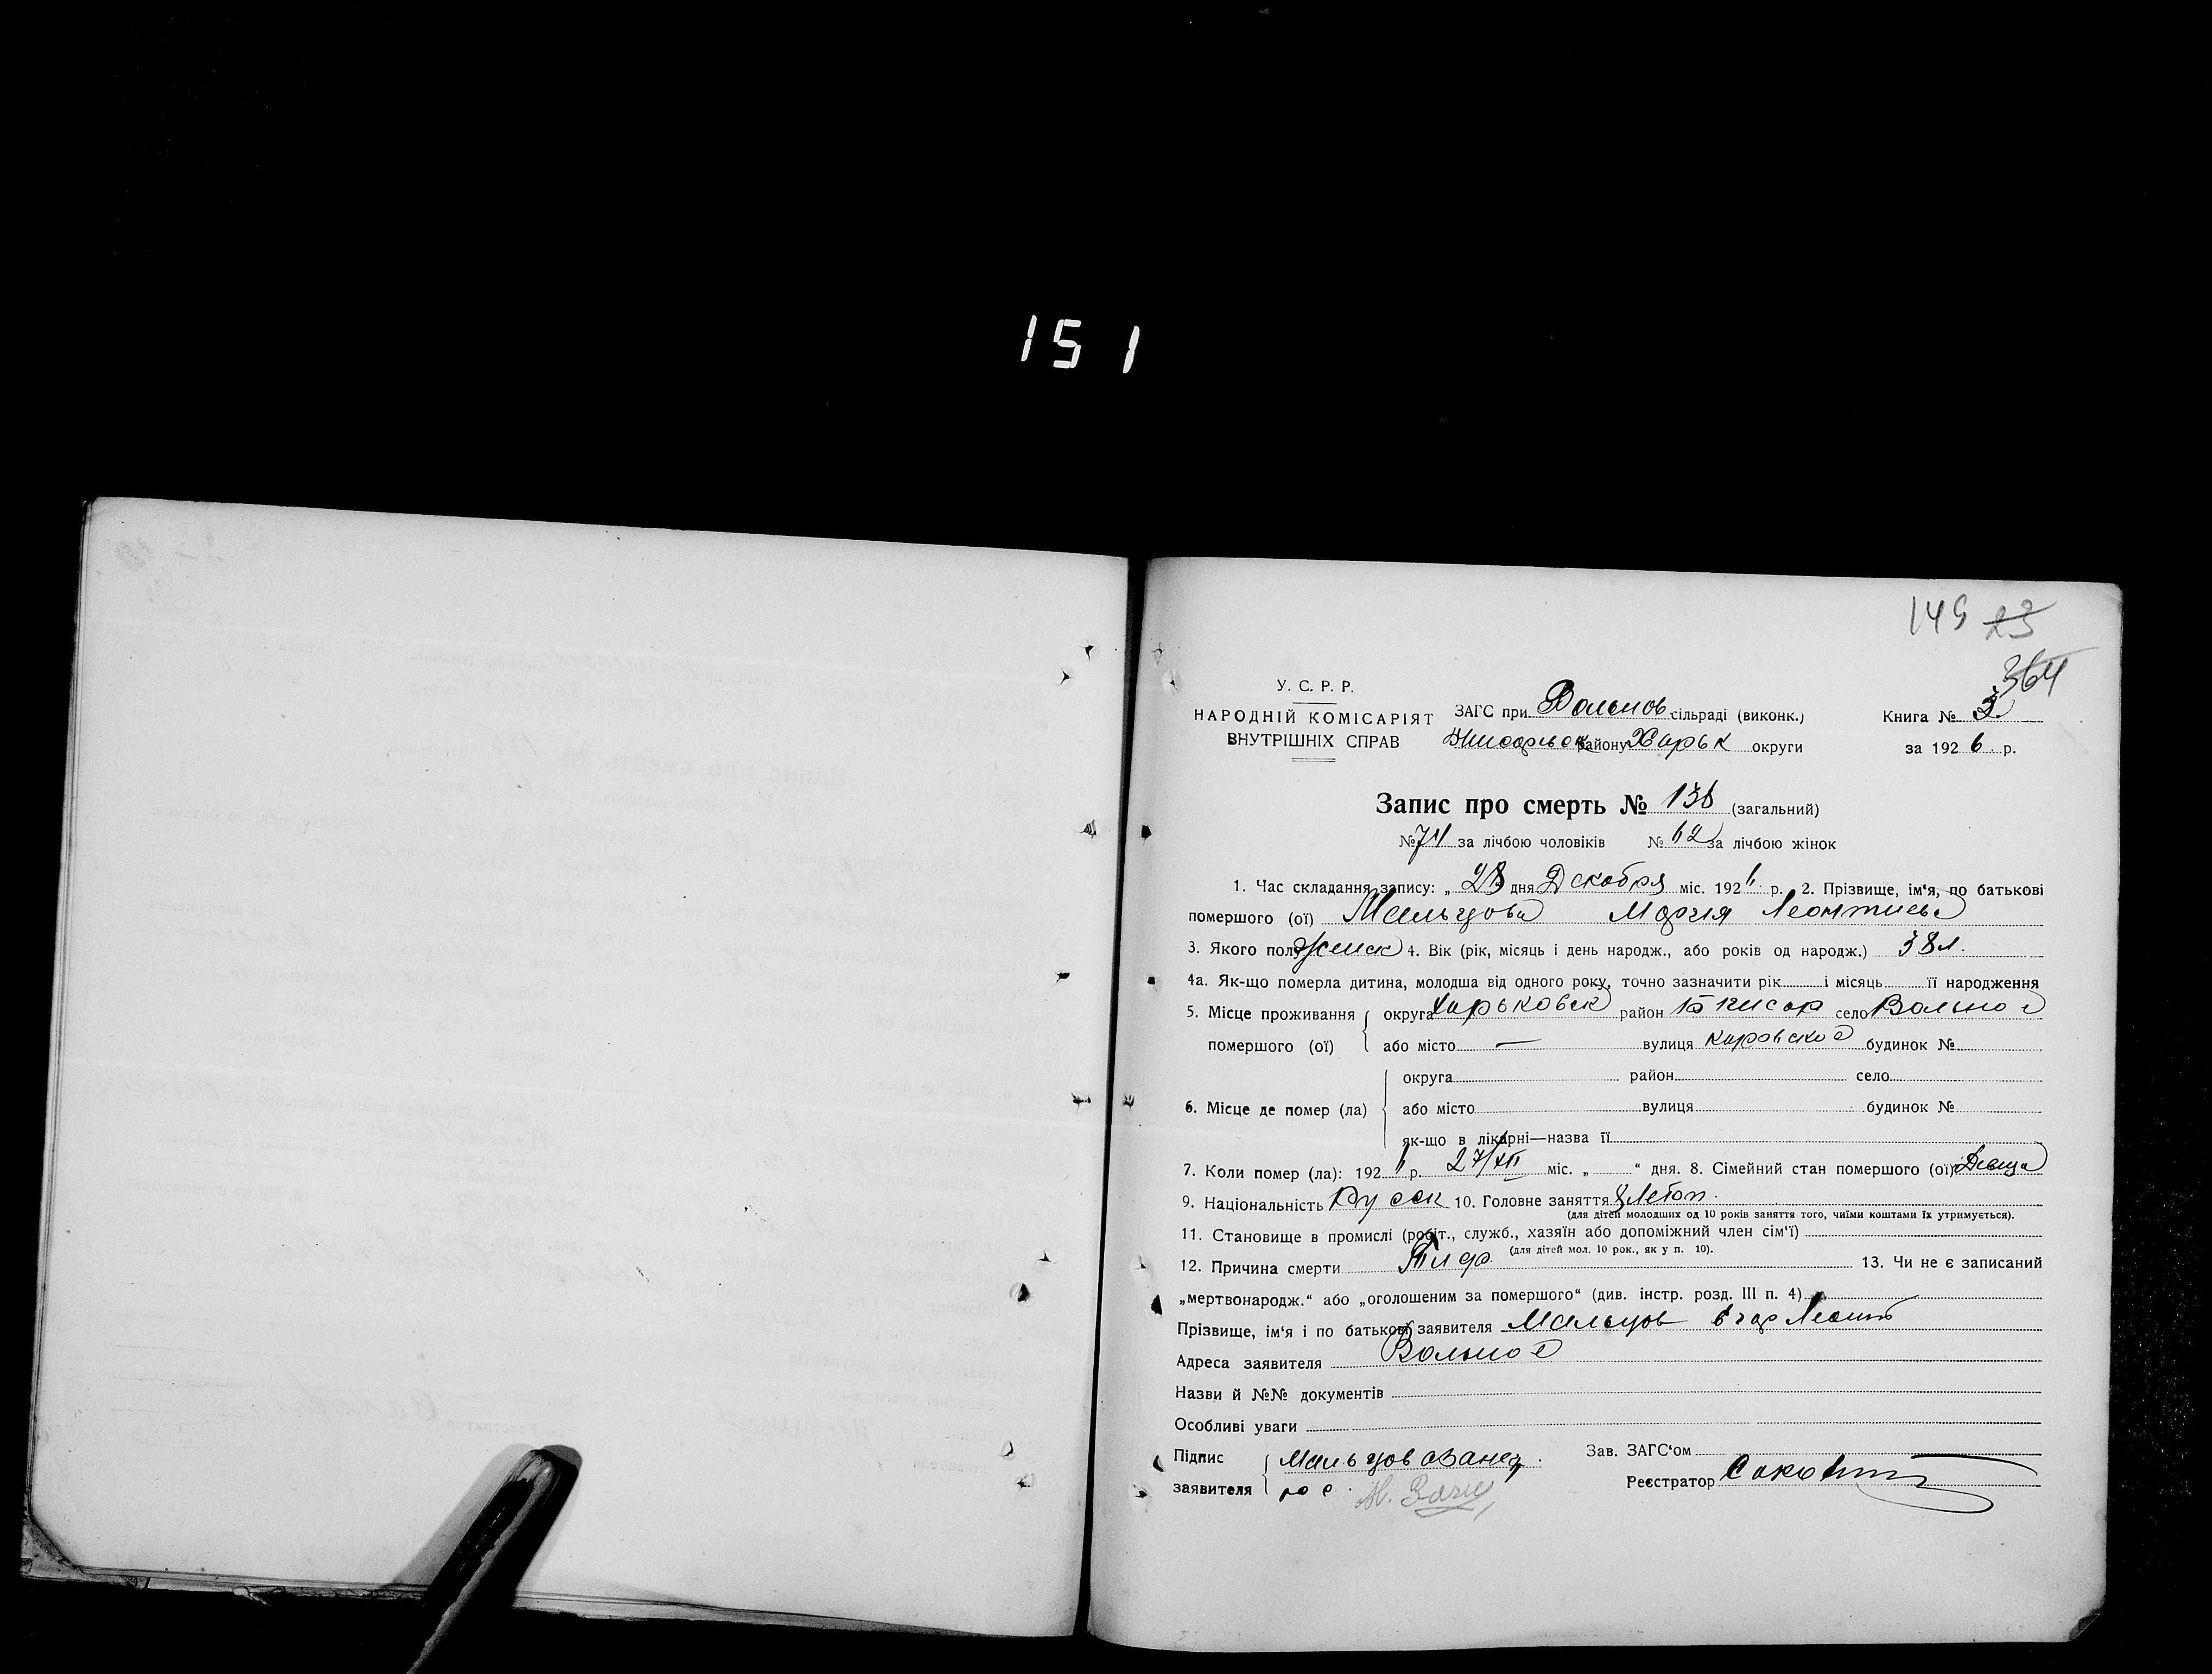 151
149 23
364
У. С. Р. Р.
НАРОДНІЙ КОМІСАРІЯТ
ВНУТРІШНІХ СПРАВ
ЗАГС при Вольнов сільраді (виконк.)
району Харьк округи
Книга № 3
за 1926 р.
Запис про смерть № 136 (загальний)
№ 74 за лічбою чоловіків № 62 за лічбою жінок
1. Час складання запису: „ 28 дня Декабря міс. 1926 р. 2. Прізвище, ім‘я, по батькові
помершого (ої) Мальцова Мария Леонтиева
3. Якого полу Женск 4. Вік (рік, місяць і день народж., або років од народж.) 38 л.
4а. Як-що померла дитина, молодша від одного року, точно зазначити рік і місяць її народження
5. Місце проживання помершого (ої)
округа Харьковск район село Вольное
або місто — вулиця будинок №
6. Місце де помер (ла)
округа район село
або місто вулиця будинок №
як-що в лікарні—назва її
7. Коли помер (ла): 1926 р. 27/XII міс. „ “ дня. 8. Сімейний стан помершого (ої) Девица
9. Національність Русск 10. Головне заняття Хлебоп.
(для дітей молодших од 10 років заняття того, чиїми коштами їх утримується).
11. Становище в промислі (робіт., служб., хазяїн або допоміжний член сім‘ї)
(для дітей мол. 10 рок., як у п. 10).
12. Причина смерти Тиф 13. Чи не є записаний
„мертвонародж.“ або „оголошеним за помершого“ (див. інстр. розд. III п. 4)
Прізвище, ім‘я і по батькові заявителя Мальцов Егор Леонт
Адреса заявителя Вольное
Назви й №№ документів
Особливі уваги
Підпис заявителя
Мальцов
Зав. ЗАГС‘ом
Реєстратор